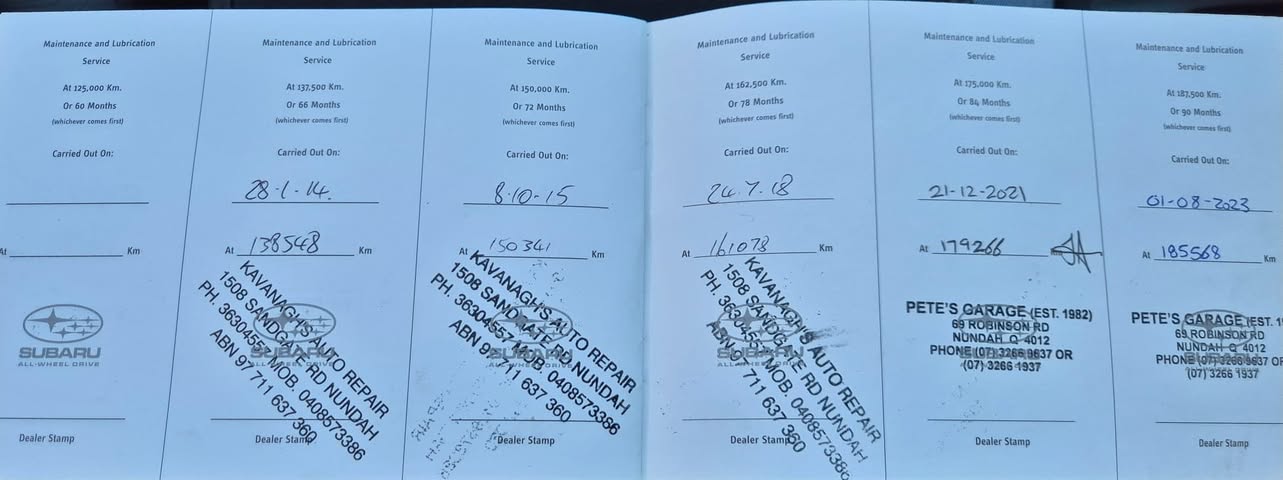 Maintenance and Lubrication
Service
At 125,000 Km.
Or 60 Months
(whichever comes first)
Carried Out On:
At Km
SUBARU
ALL-WHEEL DRIVE
Dealer Stamp
Maintenance and Lubrication
Service
At 137,500 Km.
Or 66 Months
(whichever comes first)
Carried Out On:
28-1-14.
At 138548 Km
KAVANAGHS AUTO REPAIR
1508 SANDGATE RD NUNDAH
PH. 36304557 MOB. 0408573386
ABN 97 711 637 360
SUBARU
Dealer Stamp
Maintenance and Lubrication
Service
At 150,000 Km.
Or 72 Months
(whichever comes first)
Carried Out On:
8-10-15
At 150341 Km
KAVANAGHS AUTO REPAIR
1508 SANDGATE RD NUNDAH
PH. 36304557 MOB. 0408573386
ABN 97 711 637 360
SUBARU
ALL-WHEEL DRIVE
Dealer Stamp
Maintenance and Lubrication
Service
At 162,500 Km.
Or 78 Months
(whichever comes first)
Carried Out On:
24.7.18
At 161078 Km
KAVANAGHS AUTO REPAIR
1508 SANDGATE RD NUNDAH
PH. 36304557 MOB. 0408573386
ABN 97 711 637 360
SUBARU
Dealer Stamp
Maintenance and Lubrication
Service
At 175,000 Km.
Or 84 Months
(whichever comes first)
Carried Out On:
21-12-2021
At 179266 Km
PETE'S GARAGE (EST. 1982)
69 ROBINSON RD
NUNDAH Q 4012
PHONE (07) 3266 9637 OR
(07) 3266 1937
Dealer Stamp
Maintenance and Lubrication
Service
At 187,500 Km.
Or 90 Months
(whichever comes first)
Carried Out On:
01-08-2023
At 185568 Km
PETE'S GARAGE (EST. 1
69 ROBINSON RD
NUNDAH Q 4012
PHONE (07) 3266 9637 OR
(07) 3266 1937
Dealer Stamp